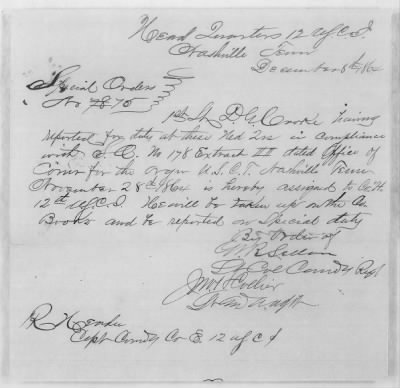 Head Quarters 12 U.S.C.I.
Nashville Tenn
December 8th 1864
Special Orders
No 75
1st Lt D. G. Cooke having
reported for duty at these Hed Qrs in compliance
with S. O. No 178 Extract II dated Office of
Comr for the Organ U.S.C.T. Nashville Tenn
November 28th 1864 is hereby assigned to Co
12th U.S.C.I. He will be taken up on the
Books and be reported on Special duty
By Order of
W R Sellon
Lt Col Comdg Regt
Jno Hollier
Lt and Adjt
Capt Comdg Co E. 12 U.S.C.I